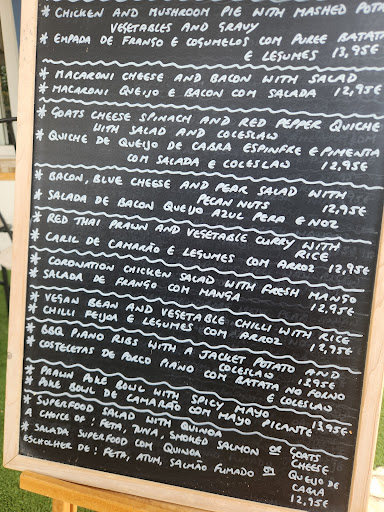 * CHICKEN AND MUSHROOM PIE WITH MASHED
VEGETABLES AND GRAVY
* EMPADA DE FRANGO E COGUMELOS COM PUREE BATATA
E LEGUMES 13,95€
* MACARONI CHEESE AND BACON WITH SALAD
* MACARONI QUEIJO E BACON COM SALADA 12,95€
* GOATS CHEESE SPINACH AND RED PEPPER QUICHE
WITH SALAD AND COLESLAW
* QUICHE DE QUEIJO DE CABRA ESPINFRE E PIMENTA
COM SALADA E COLESLAW 12,95€
* BACON, BLUE CHEESE AND PEAR SALAD WITH
PECAN NUTS
* SALADA DE BACON QUEIJO AZUL PERA E NOZ 12,95€
* RED THAI PRAWN AND VEGETABLE CURRY WITH
RICE
* CARIL DE CAMARÃO E LEGUMES COM ARROZ 12,95€
* CORONATION CHICKEN SALAD WITH FRESH MANGO
* SALADA DE FRANGO COM MANGA 12,95€
* VEGAN BEAN AND VEGETABLE CHILLI WITH RICE
* CHILLI FEIJOA E LEGUMES COM ARROZ 12,95€
* BBQ PIANO RIBS WITH A JACKET POTATO AND
COLESLAW 13,95€
* COSTELETAS DE PORCO PIANO COM BATATA NO FORNO
E COLESLAW
* PRAWN POKE BOWL WITH SPICY MAYO
* POKE BOWL DE CAMARÃO COM MAYO PICANTE 13,95€
* SUPERFOOD SALAD WITH QUINOA
A CHOICE OF: FETA, TUNA, SMOKED SALMON OR GOATS
CHEESE
* SALADA SUPERFOOD COM QUINOA
ESCHOLHER DE: FETA, ATUM, SALMÃO FUMADO OU QUEIJO DE
CABRA
12,95€